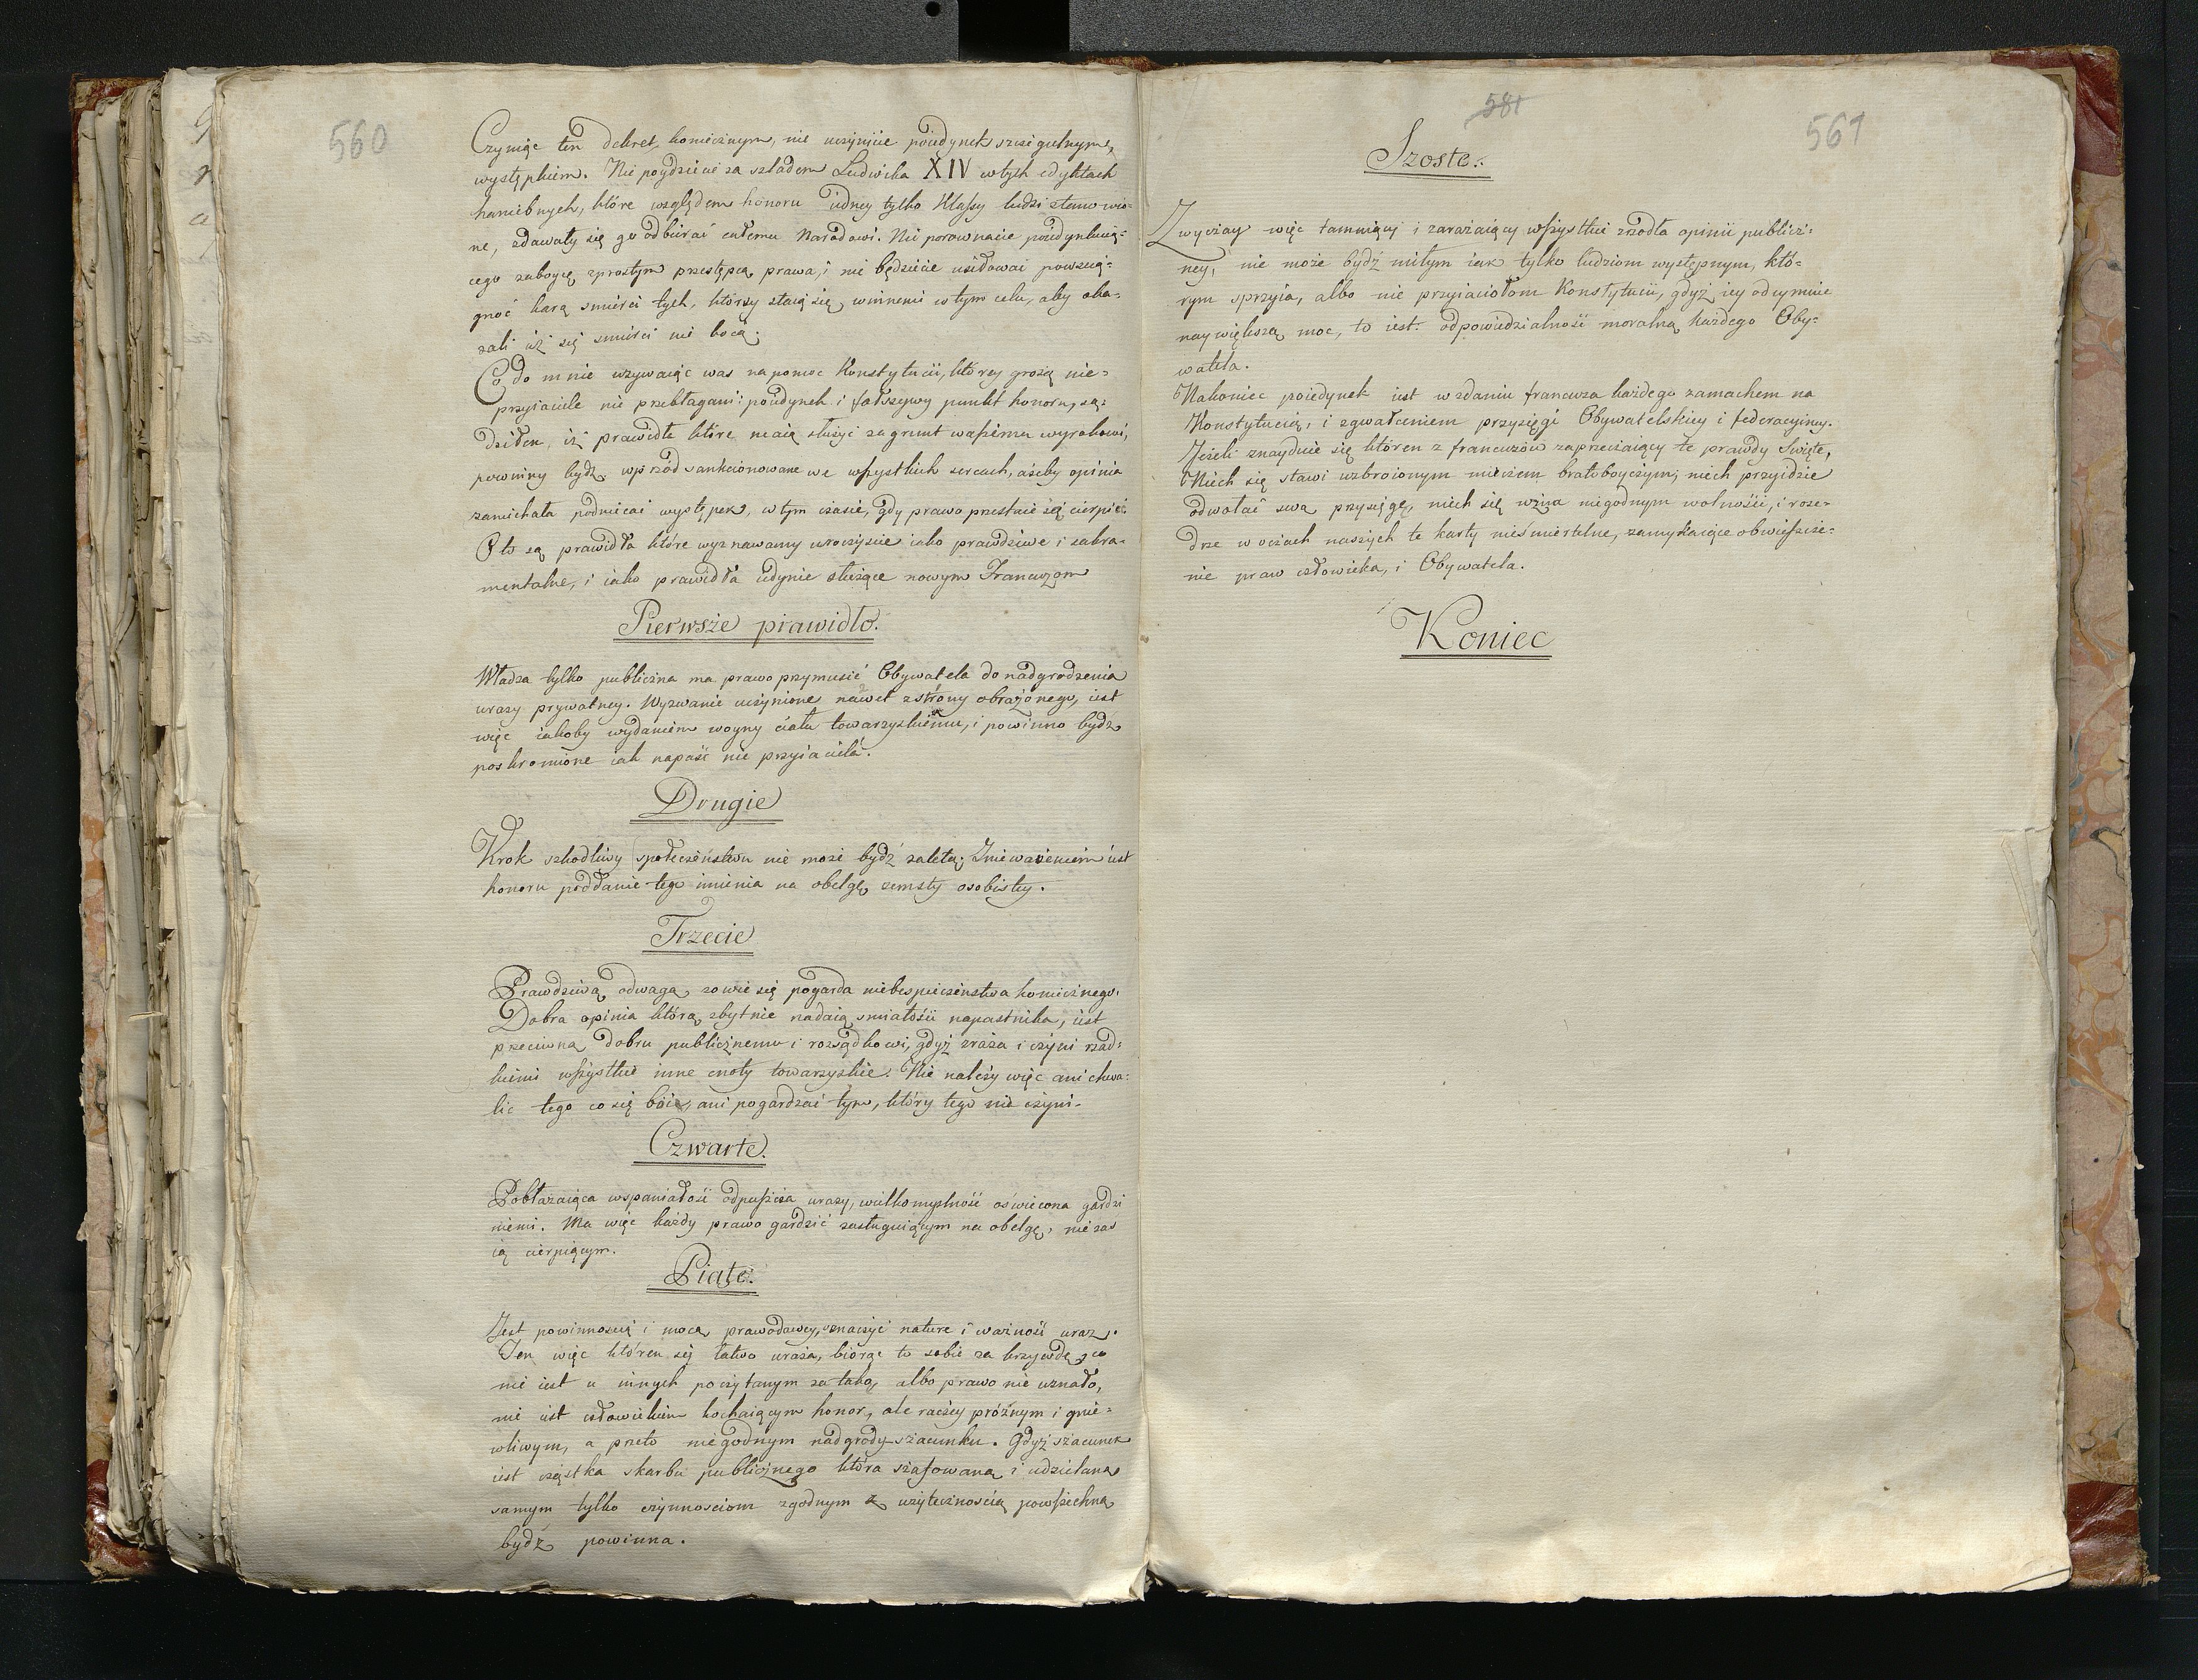 560
Czyniąc ten dekret koniecznym, nie uczynicie poiedynek szczegulnym,
występkiem. Nie poydziecie za szladem Ludwika XIV w tych edyktach
haniebnych, które względem honoru iedney tylko Klassy ludzi stanowio=
ne, zdawały się go odbierać całemu Narodowi. Nie porownacie poiedynkuią=
cego zaboycę z prostym przestępcą prawa, i nie będziecie usiłować powscią=
gnoć karą smierci tych, którzy staią się winnemi w tym celu, aby oka=
zali iż się smierci nie boią.
Co do mnie wzywaiąc was na pomoc Konstytucii, którey grożą nie=
przyiaciele nie przebłagani: poiedynek i fałszywy punkt honoru, są=
dziłem, iż prawidła które maią służyć za grunt waszemu wyrokowi,
powinny bydź wprzód sankcionowane we wszystkich sercach, ażeby opinia
zaniechała podniecać występek, w tym czasie, gdy prawo przestaie go cierpieć.
Oto są prawidła które wyznawamy uroczyscie iako prawdziwe i sakra=
mentalne, i iako prawidła iedynie służące nowym Francuzom
Pierwsze prawidło.
Władza tylko publiczna ma prawo przymusić Obywatela do nadgrodzenia
urazy prywatney. Wyzwanie uczynione nawet z strony obrażonego, iest
więc iakoby wydaniem woyny ciału towarzyskiemu, i powinno bydz
poskromione iak napaść nie przyiaciela.
Drugie
Krok szkodliwy społeczeństwu nie może bydź zaletą; Znieważeniem iest
honoru poddanie tego imienia na obelgę zemsty osobistey.
Trzecie
Prawdziwą odwagą zowie się pogarda niebespieczeństwa koniecznego.
Dobra opinia którą zbytnie nadaią smiałości napastnika, iest
przeciwna dobru publicznemu i rozsądkowi, gdyż zraża i czyni rzad=
kiemi wszystkie inne cnoty towarzyskie. Nie należy więc ani chwa=
lić tego co się biie, ani pogardzać tym, który tego nie czyni.
Czwarte.
Pobłażaiąca wspaniałość odpuszcza urazy, wielkomyslność oświecona gardzi
niemi. Ma więc każdy prawo gardzić zasługuiącym na obelgę, nie zas
ią cierpiącym.
Piąte.
Jest powinnoscią i mocą prawodawcy, oznaczyć nature i ważność uraz.
Ten więc któren się łatwo uraża, biorąc to sobie za krzywdę, co
nie iest u innych poczytanym za taką, albo prawo nie uznało,
nie iest człowiekiem kochaiącym honor, ale raczey próżnym i gnie=
wliwym, a przeto niegodnym nadgrody szacunku. Gdyż szacunek
iest cząstka skarbu publicznego która szafowaną i udzielaną
samym tylko czynnosciom zgodnym z użytecznoscią powszechną
bydź powinna.
581
561
Szoste.
Zwyczay więc tamuiący i zarażaiący wszystkie zrzodła opinii publicz=
ney, nie może bydź miłym iak tylko ludziom występnym, któ=
rym sprzyia, albo nie przyiaciołom Konstytucii, gdyż iey odeymuie
naywiększą moc, to iest: odpowiedzialność moralną każdego Oby=
watela.
Nakoniec poiedynek iest w zdaniu francuza każdego zamachem na
Konstytucią, i zgwałceniem przysięgi Obywatelskiey i federacyiney.
Jeżeli znaydzie się któren z francuzów zaprzeczaiący te prawdy Święte,
Niech się stawi uzbroionym mieczem bratoboyczym, niech przyidzie
odwołać swą przysięgę, niech się wzna niegodnym wolności, i roze=
drze w oczach naszych te karty nieśmiertelne, zamykaiące obwieszcze=
nie praw człowieka, i Obywatela.
Koniec